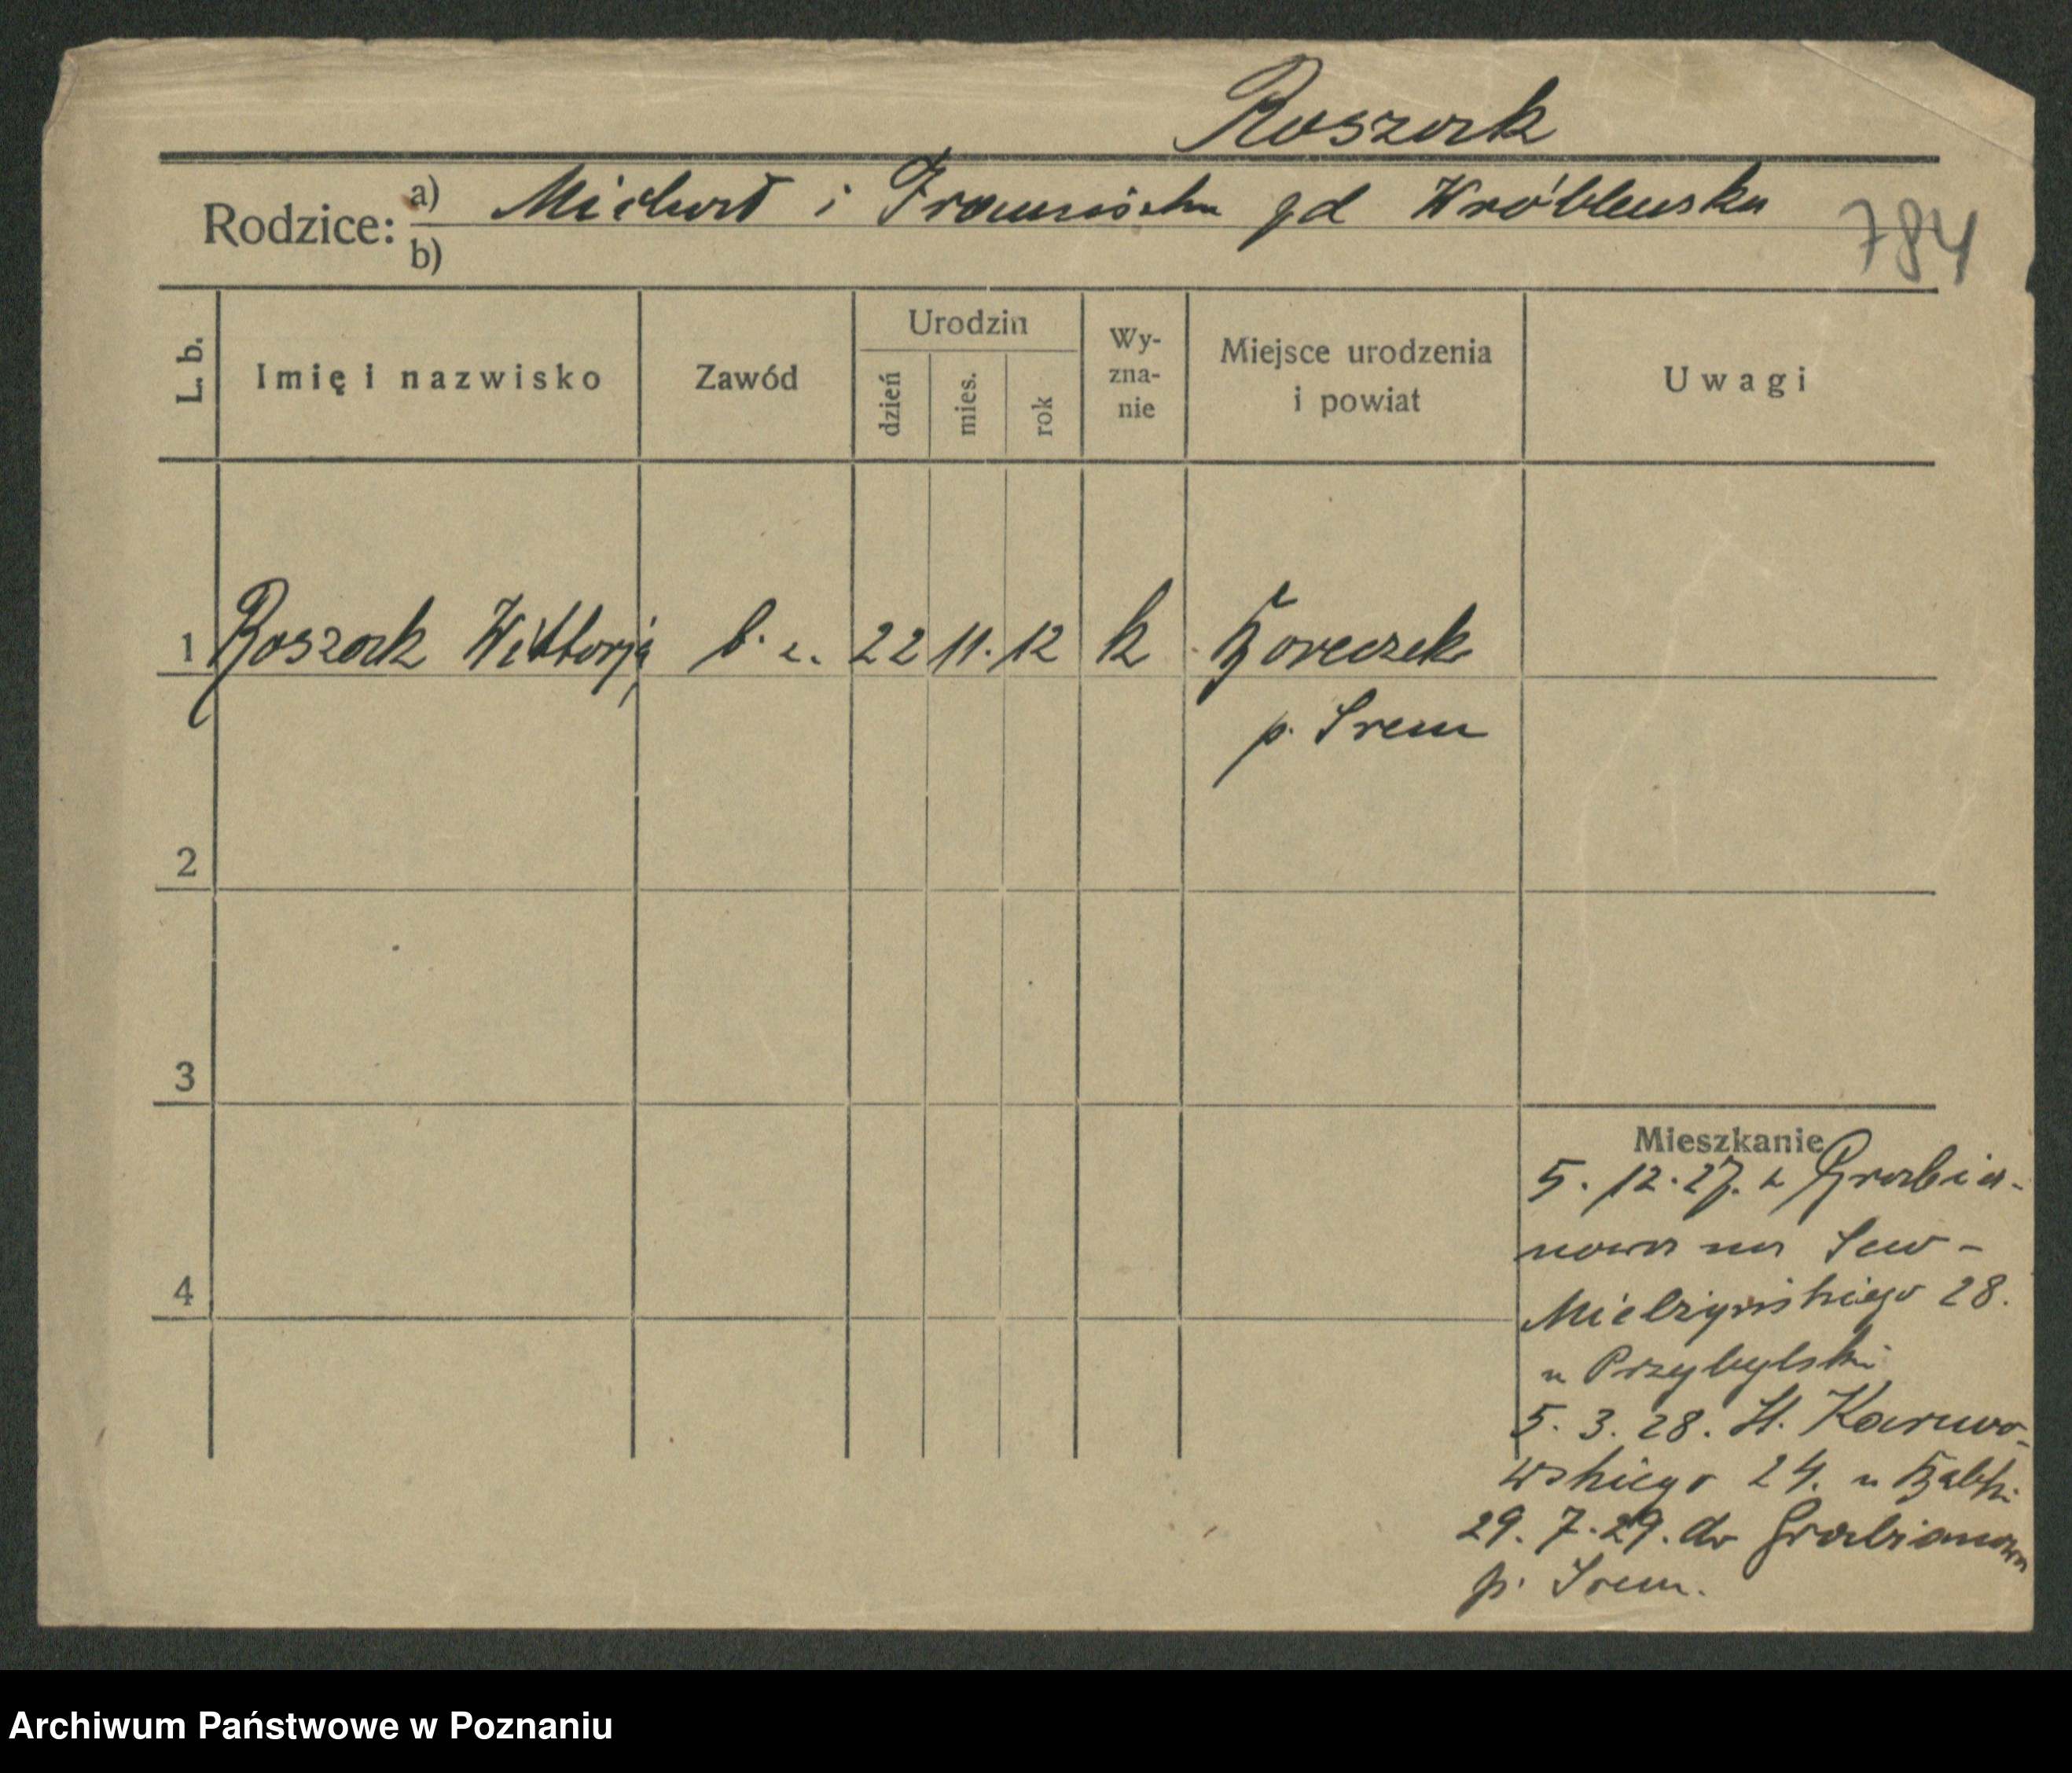 Roszak
Rodzice: a) Michał i Franciszka gd Wróblewska
b)
784
L. b.
Imię i nazwisko
Zawód
Urodzin
dzień
mies.
rok
Wy-
zna-
nie
Miejsce urodzenia
i powiat
Uwagi
1 Roszak Wiktorja b. z. 22 11. 12 k
p. Srem
2
3
4
Mieszkanie
5. 12. 27. z Grabia-
nowa na Sew-
Mielżyńskiego 28.
u Przybylski
5. 3. 28. St. Karwo-
wskiego 24. u
29. 7. 29. do Grabianowa
p. Srem.
Archiwum Państwowe w Poznaniu